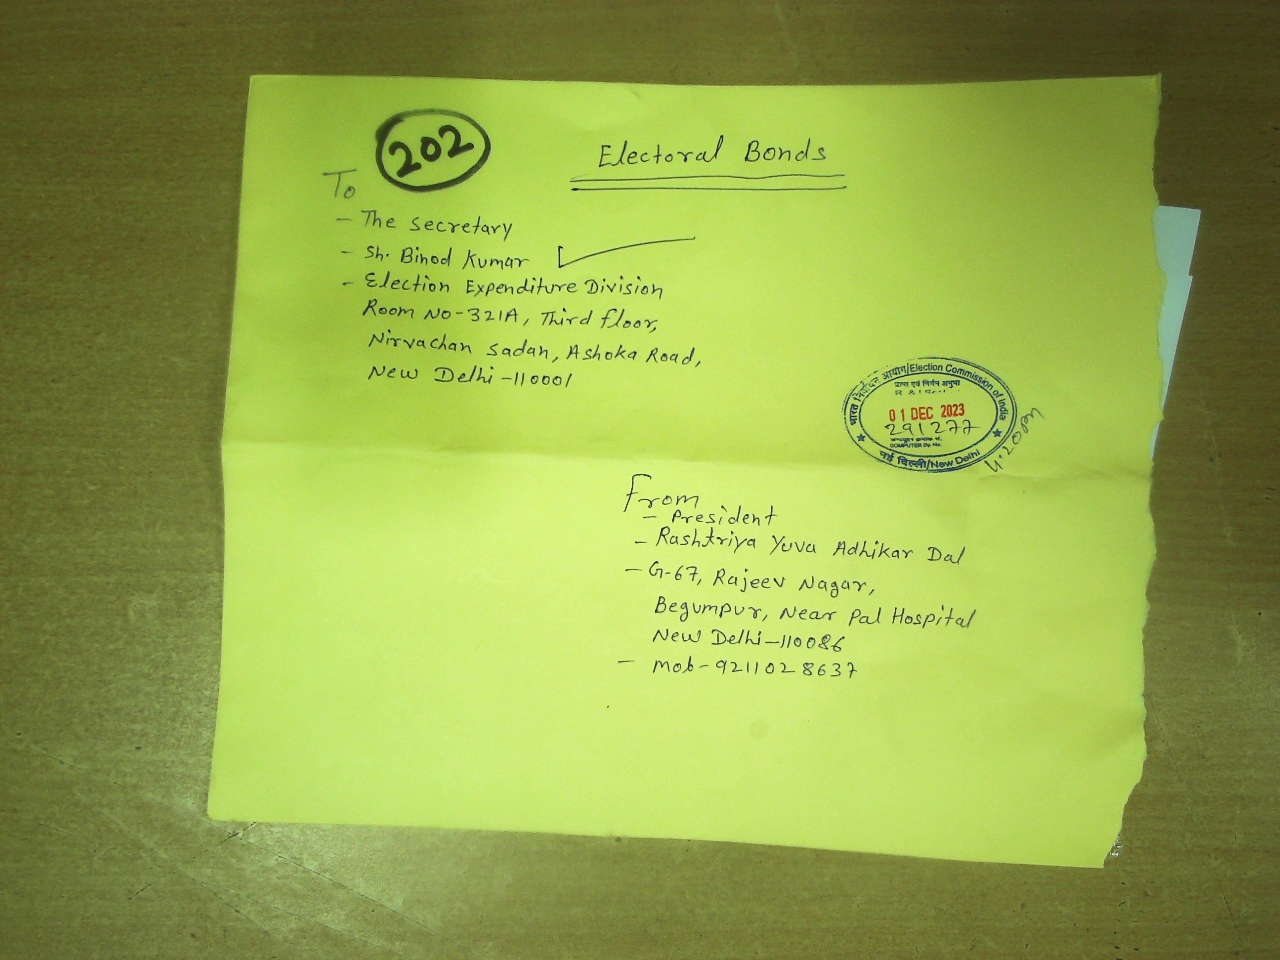 202
Electoral Bonds
To
- The Secretary
- Sh. Binod Kumar
- Election Expenditure Division
Room No-321A, Third floor,
Nirvachan Sadan, Ashoka Road,
New Delhi-110001
भारत निर्वाचन आयोग/Election Commission of India
प्राप्त एवं निर्गम अनुभाग
01 DEC 2023
291277
COMPUTER Dy. No.
नई दिल्ली/New Delhi
4.20pm
From
- President
- Rashtriya Yuva Adhikar Dal
- G-67, Rajeev Nagar,
Begumpur, Near Pal Hospital
New Delhi-110086
- Mob-9211028637